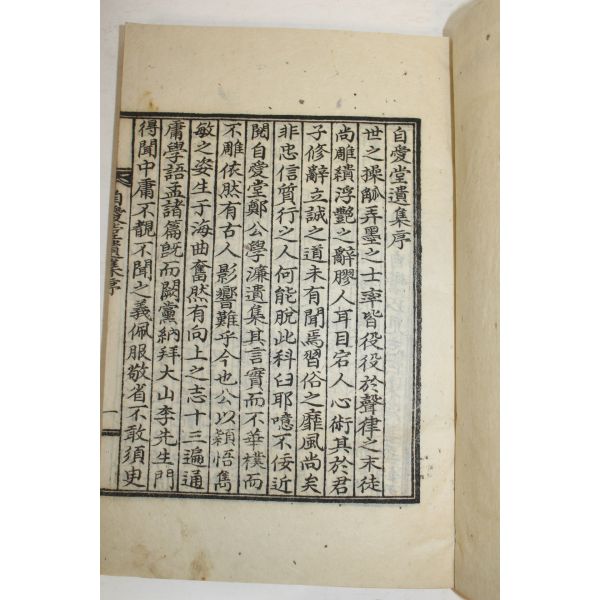 自愛堂遺集序
世之操觚弄墨之士率皆役役於聲律之末徒
尚雕繢浮艶之辭膠人耳目宕人心術其於君
子修辭立誠之道未有聞焉習俗之靡風尚矣
非忠信質行之人何能脫此科臼耶噫不佞近
閱自愛堂鄭公學濂遺集其言實而不華樸而
不雕依然有古人影響難乎今也公以穎悟雋
敏之姿生于海曲奮然有向上之志十三遍通
庸學語孟諸篇旣而闕黨納拜大山李先生門
得聞中庸不覩不聞之義佩服敬省不敢須臾
自愛堂遺集序
一